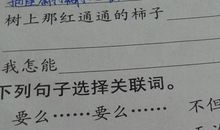 树上那红通通的柿子
我怎能
下列句子选择关联词。
要么……要么…… 不但